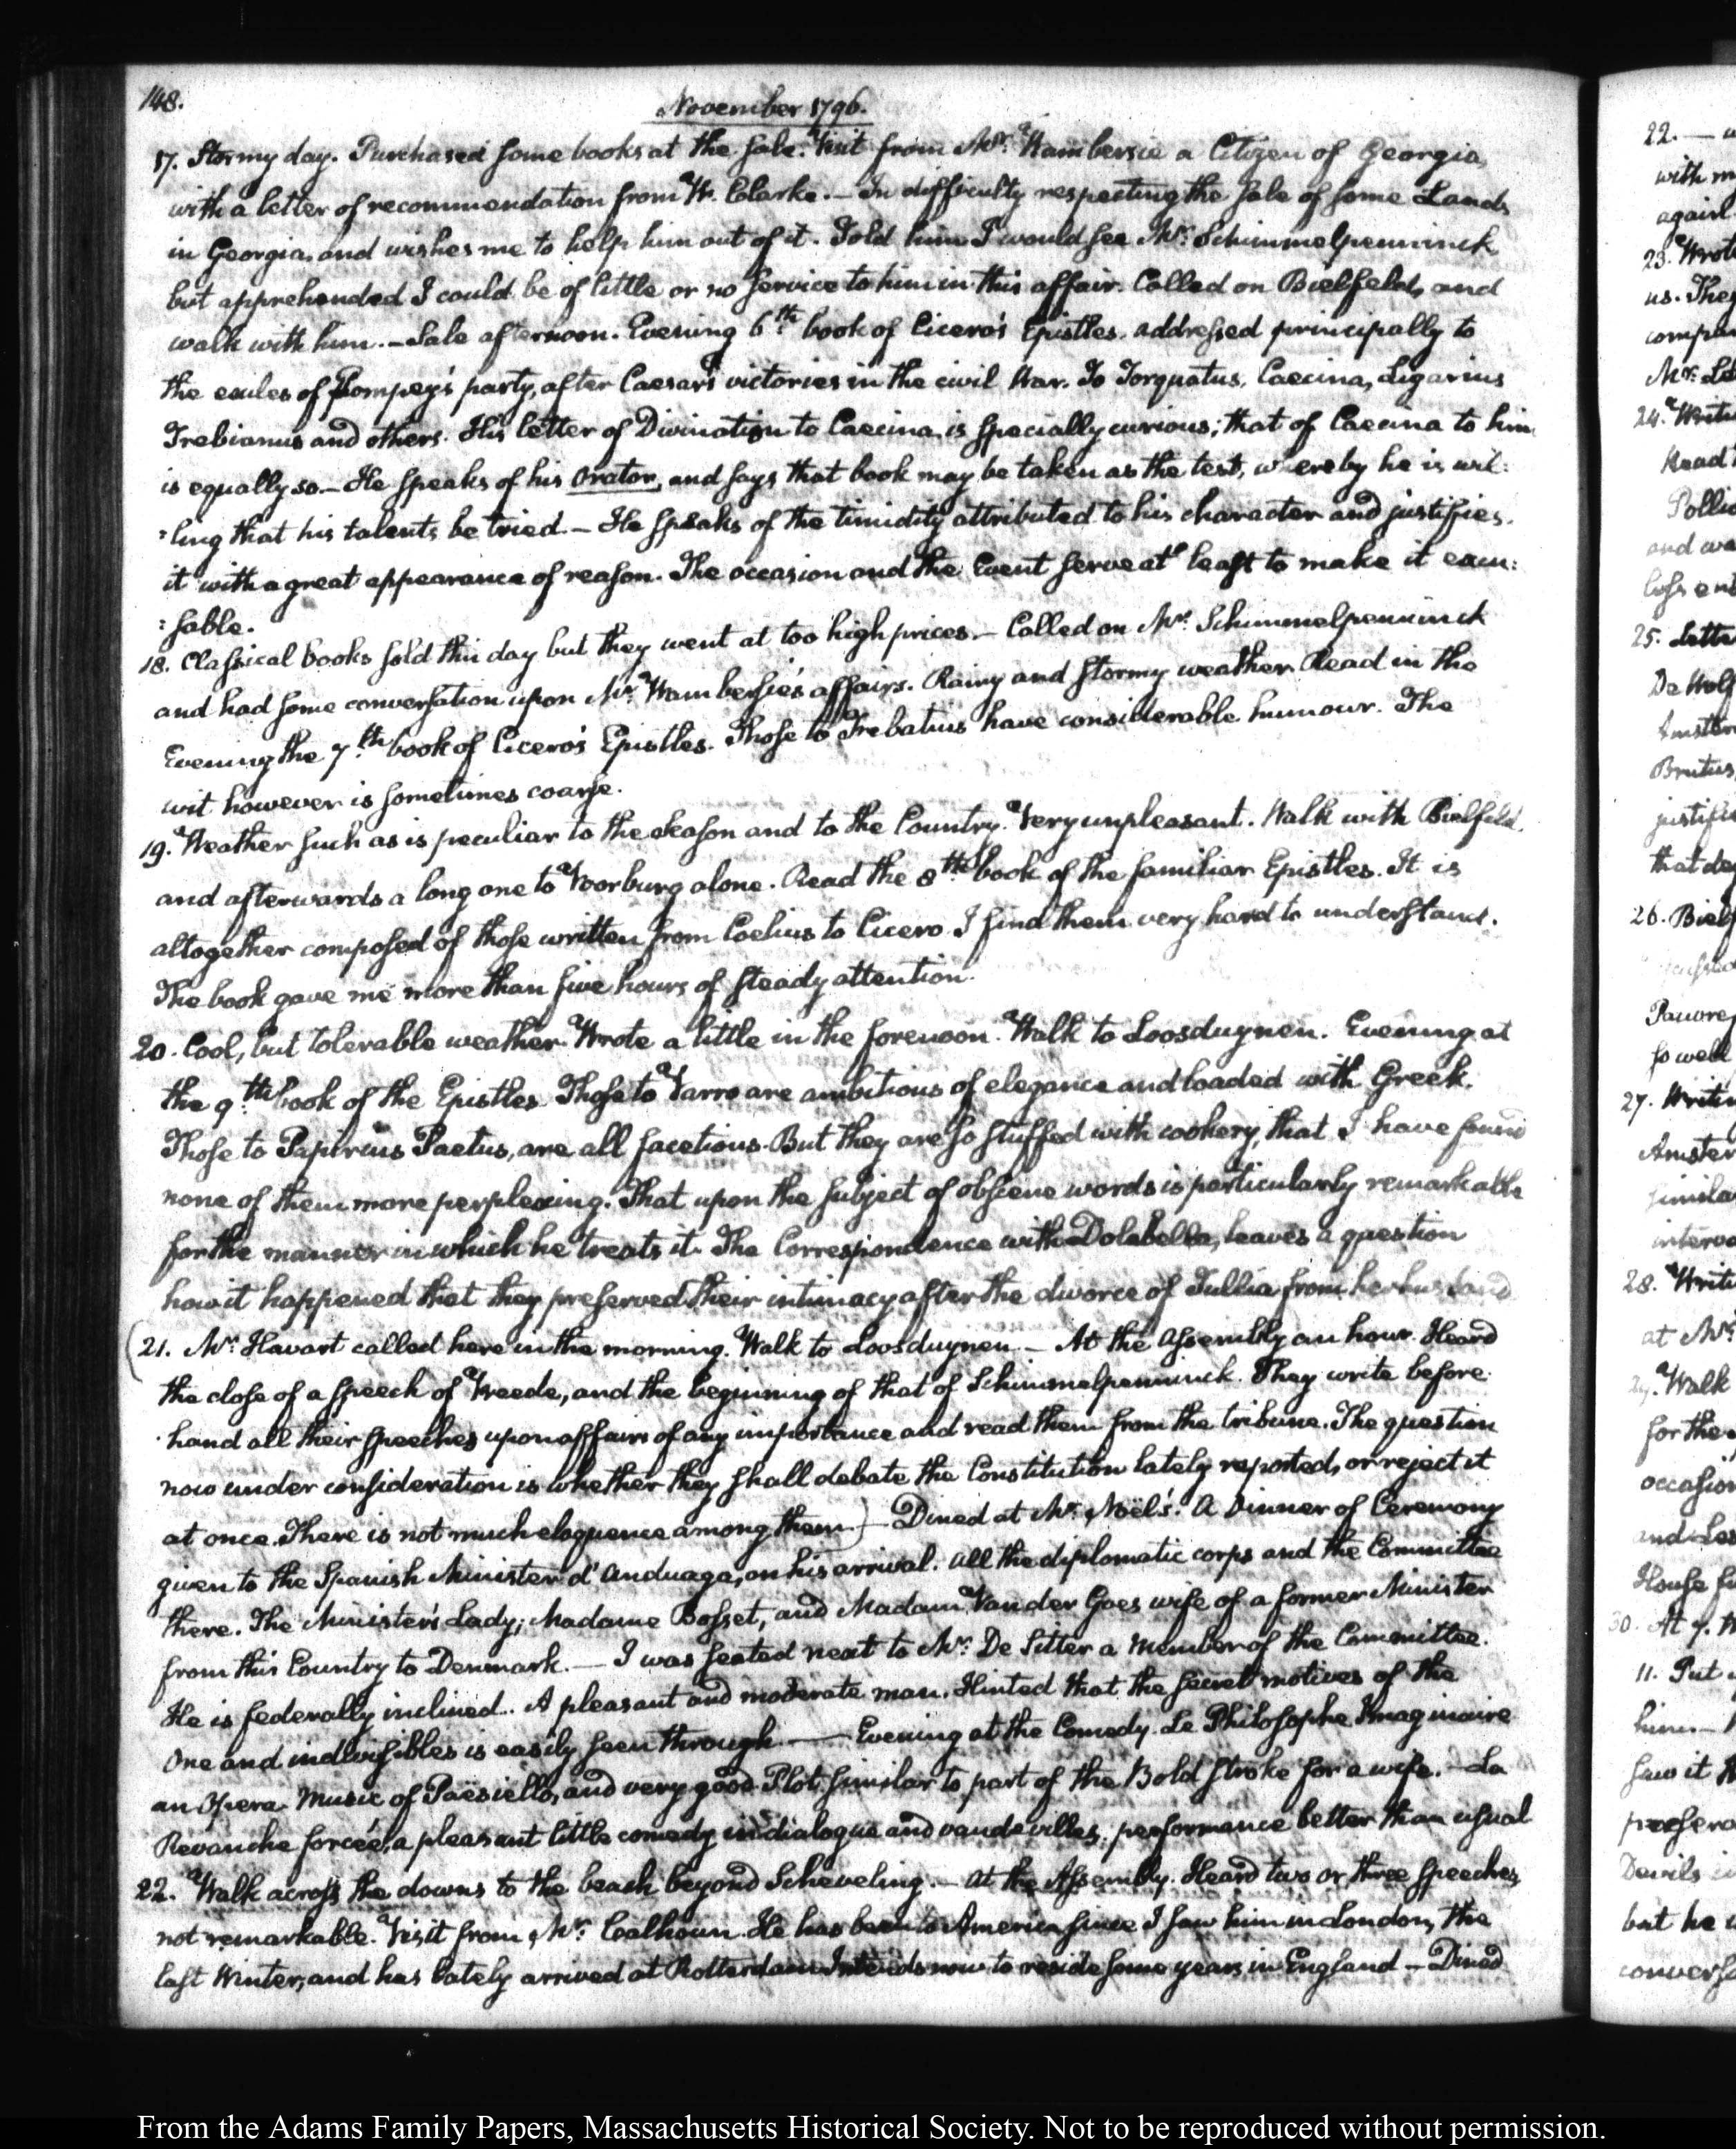 148.
November 1796.
17. Stormy day. Purchased some books at the sale. Visit from Mr. Wambersie a Citizen of Georgia,
with a letter of recommendation from W. Clarke. — In difficulty respecting the sale of some Lands
in Georgia, and wishes me to help him out of it. Told him I would see Mr. Schimmelpenninck
but apprehended I could be of little or no service to him in this affair. Called on Bielfeld, and
walk with him. — Sale afternoon. Evening 6th. book of Cicero's Epistles. addressed principally to
the exiles of Pompey's party, after Caesar's victories in the civil War. To Torquatus, Caecina, Ligarius
Trebianus and others. His letter of Divination to Caecina, is specially curious; that of Caecina to him
is equally so. — He speaks of his Orator, and says that book may be taken as the test, whereby he is wil:
:ling that his talents be tried. — He speaks of the timidity attributed to his character and justifies
it with a great appearance of reason. The occasion and the Event serve at least to make it excu:
:sable.
18. Classical books sold this day but they went at too high prices. — Called on Mr. Schimmelpenninck
and had some conversation upon Mr. Wambersie's affairs. Rainy and stormy weather. Read in the
Evening the 7.th book of Cicero's Epistles. Those to Trebatius have considerable humour. The
wit however is sometimes coarse.
19. Weather such as is peculiar to the season and to the Country. Very unpleasant. Walk with Bielfeld.
and afterwards a long one to Voorburg alone. Read the 8th. book of the familiar Epistles. It is
altogether composed of those written from Coelius to Cicero. I find them very hard to understand.
The book gave me more than five hours of steady attention.
20. Cool, but tolerable weather. Wrote a little in the forenoon. Walk to Loosduynen. Evening at
the 9.th book of the Epistles. Those to Varro are ambitious of elegance and loaded with Greek.
Those to Papirius Paetus, are all facetious. But they are so stuffed with cookery, that I have found
none of them more perplexing. That upon the subject of obscene words is particularly remarkable
for the manner in which he treats it. The Correspondence with Dolabella, leaves a question
how it happened that they preserved their intimacy after the divorce of Tullia from her husband
(21. Mr. Havart called here in the morning. Walk to Loosduynen. — At the Assembly an hour. Heard
the close of a speech of Vreede, and the beginning of that of Schimmelpenninck. They write before
hand all their speeches upon affairs of any importance and read them from the tribune. The question
now under consideration is whether they shall debate the Constitution lately reported, or reject it
at once. There is not much eloquence among them.) — Dined at Mr. Noël's. A Dinner of Ceremony
given to the Spanish Minister d'Anduaga, on his arrival. All the diplomatic corps and the Committee
there. The Minister's Lady; Madame Bosset, and Madam Vander Goes wife of a former Minister
from this Country to Denmark. — I was seated next to Mr. De Sitter a member of the Committee.
He is federally inclined. A pleasant and moderate man. Hinted that the secret motives of the
One and indivisibles is easily seen through. — Evening at the Comedy. Le Philosophe Imaginaire
an Opera. Music of Paësiello, and very good. Plot similar to part of the Bold stroke for a wife. — La
Revanche forcée, a pleasant little comedy in dialogue and vaudevilles; performance better than usual
22. Walk across the downs to the beach beyond Scheveling. — At the Assembly. Heard two or three speeches,
not remarkable. Visit from Mr. Calhoun. He has been to America since I saw him in London, the
last Winter, and has lately arrived at Rotterdam. Intends now to reside some years in England — Dined
From the Adams Family Papers, Massachusetts Historical Society. Not to be reproduced without permission.